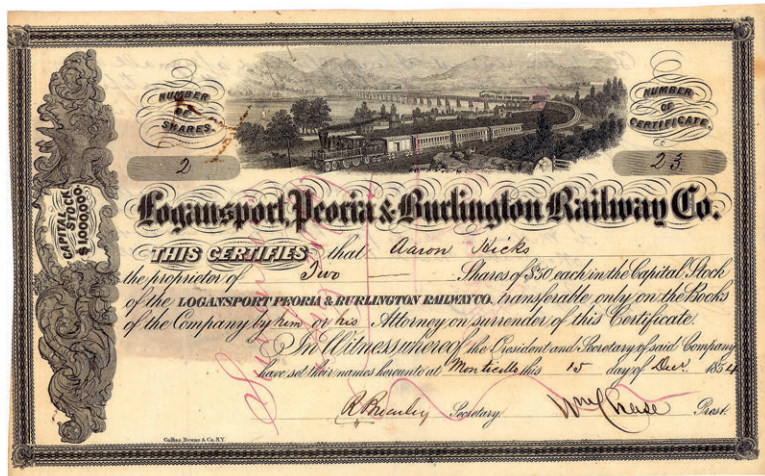 NUMBER OF SHARES.
2
NUMBER OF CERTIFICATE.
23.
CAPITAL STOCK
$1000000.
Logansport, Peoria & Burlington Railway Co.
THIS CERTIFIES that Aaron Hicks
the proprietor of Two Shares of $50 each in the Capital Stock
of the LOGANSPORT PEORIA & BURLINGTON RAILWAY CO. transferable only on the Books
of the Company by him or his Attorney on surrender of this Certificate.
In Witness whereof the President and Secretary of said Company
have set their names hereunto at Monticello this 15 day of Decr. 1854
Secretary. Wm Chase Prest.